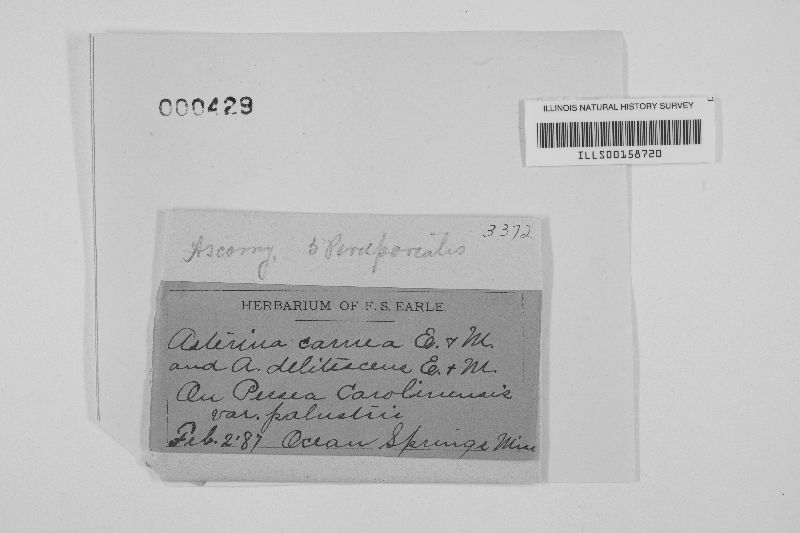 000429
ILLINOIS NATURAL HISTORY SURVEY
ILLS00158720
3372
Ascomy. 5 Perisporiales
HERBARIUM OF F. S. EARLE
Asterina carnea E. & M.
and A. delitescens E. & M.
On Persea Carolinensis
var. palustris
Feb. 2 '87 Ocean Springs Miss